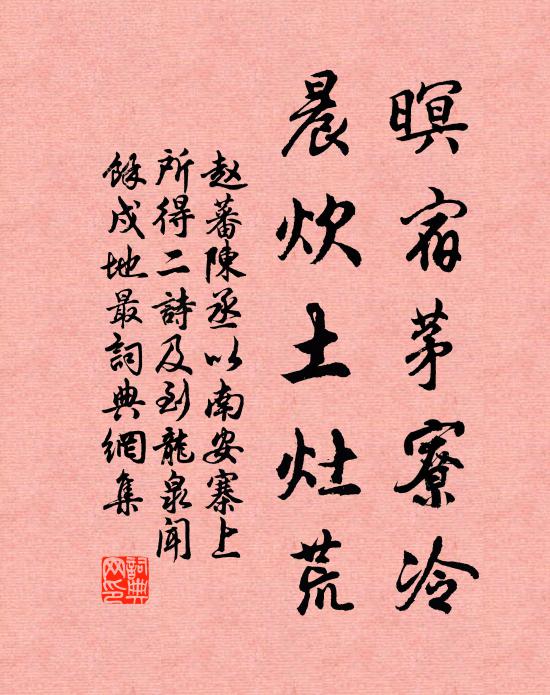 暝宿茅寮冷
晨炊土灶荒
赵蕃陳丞以南安寨上
所得二詩及到龍泉闻
餘戍地最詞典網集
詞典
网印